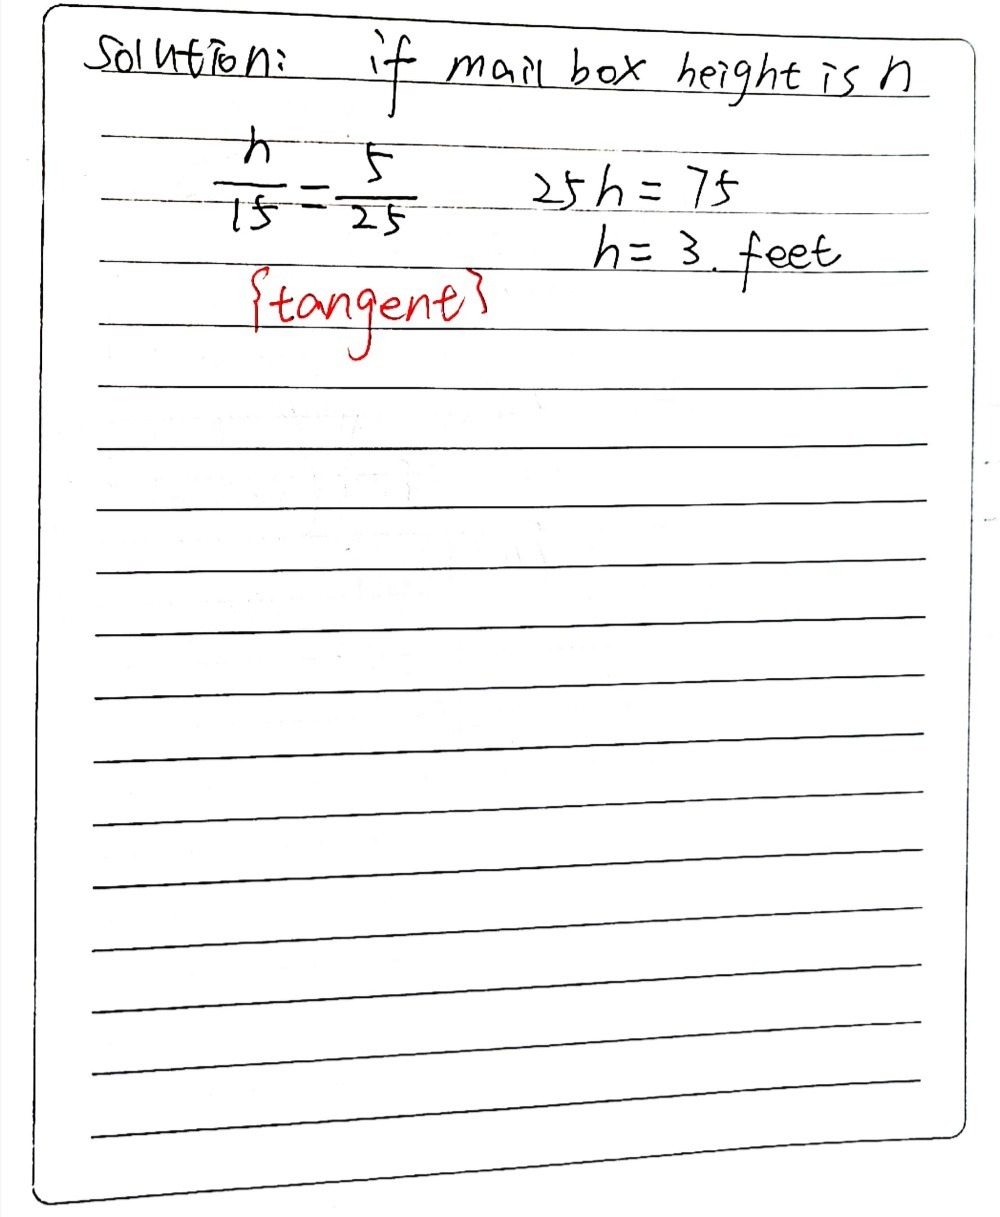 Solution: if mail box height is h
h/15 = 5/25 25h = 75
h = 3. feet
{tangent}